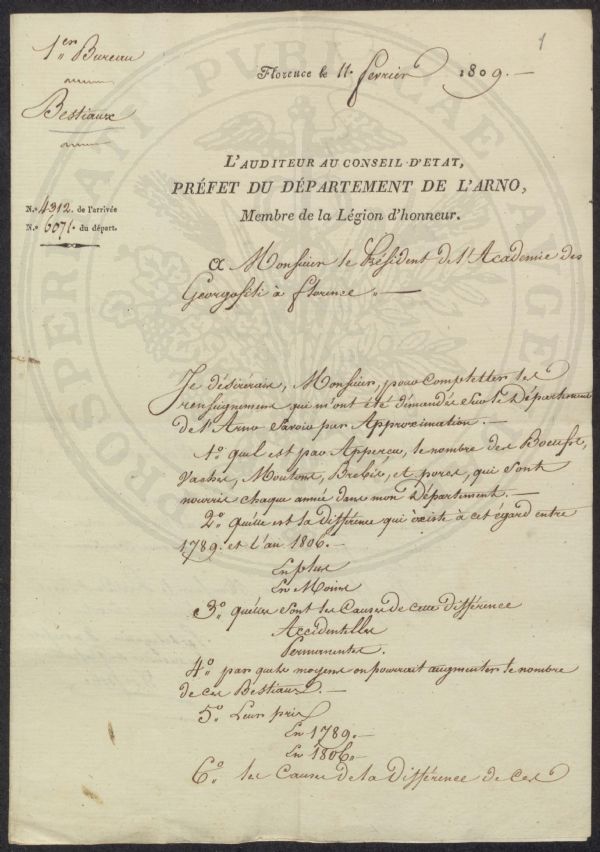 1er Bureau
Bestiaux
1
Florence le 11. février 1809.
L'AUDITEUR AU CONSEIL D'ETAT,
PRÉFET DU DÉPARTEMENT DE L'ARNO,
Membre de la Légion d'honneur.
N.° 4312. de l'arrivée
N.° 6071. du départ.
A Monsieur le Président de l'Academie des
Georgofili à florence.
Je désirérais, Monsieur, pour completter les
renseignemens qui m'ont été démandés sur le Département
de l'Arno Savoir par Approximation.
1.° quel est par Appercu, le nombre des Boeufs,
Vaches, Moutons, Brebis, et porcs, qui sont
nourris chaque année dans mon Département.
2.° quelle est la différence qui éxiste à cet égard entre
1789. et l'an 1806.
En plus
En Moins
3.° quelles sont les Causes de cette différence
Accidentelles
Permanentes.
4.° par quels moyens on pourrait augmenter le nombre
de ces Bestiaux.
5.° Leur prix
En 1789.
En 1806.
6.° les Causes de la Différence de ces
PUBLICAE
SPERAT